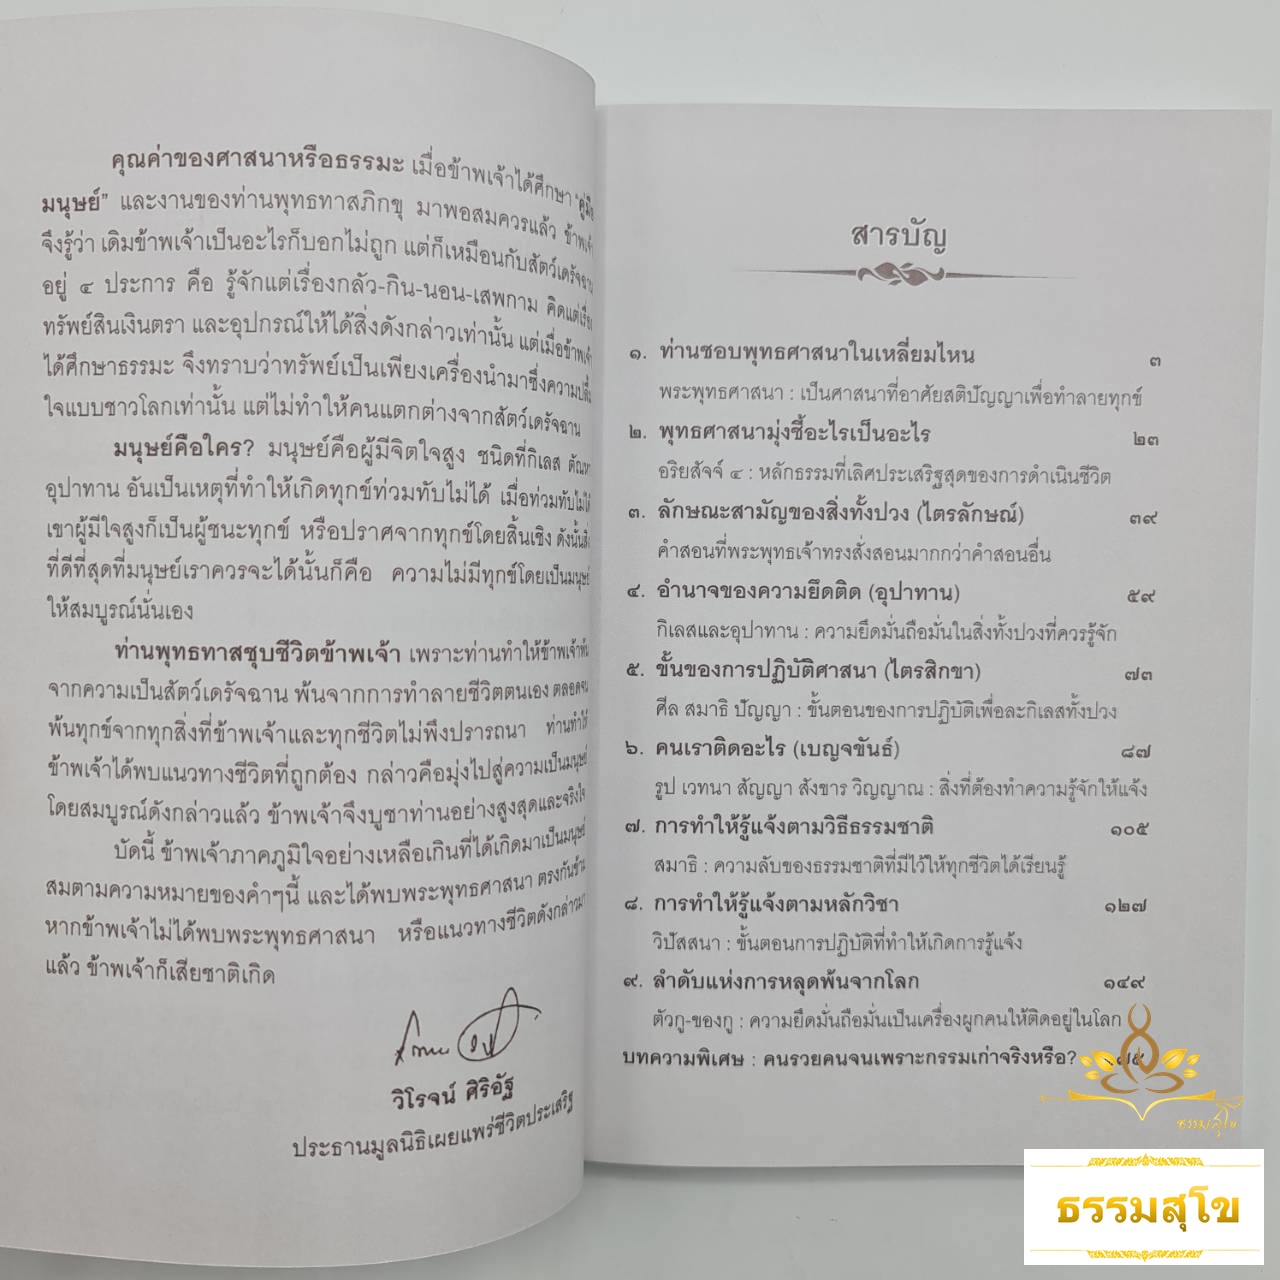 คุณค่าของศาสนาหรือธรรมะ เมื่อข้าพเจ้าได้ศึกษา "คู่มือ
มนุษย์" และงานของท่านพุทธทาสภิกขุ มาพอสมควรแล้ว ข้าพเจ้า
จึงรู้ว่า เดิมข้าพเจ้าเป็นอะไรก็บอกไม่ถูก แต่ก็เหมือนกับสัตว์เดรัจฉาน
อยู่ ๔ ประการ คือ รู้จักแต่เรื่องกลัว-กิน-นอน-เสพกาม คิดแต่เรื่อง
ทรัพย์สินเงินตรา และอุปกรณ์ให้ได้สิ่งดังกล่าวเท่านั้น แต่เมื่อข้าพเจ้า
ได้ศึกษาธรรมะ จึงทราบว่าทรัพย์เป็นเพียงเครื่องนำมาซึ่งความปลื้ม
ใจแบบชาวโลกเท่านั้น แต่ไม่ทำให้คนแตกต่างจากสัตว์เดรัจฉาน
มนุษย์คือใคร? มนุษย์คือผู้มีจิตใจสูง ชนิดที่กิเลส ตัณหา
อุปาทาน อันเป็นเหตุที่ทำให้เกิดทุกข์ท่วมทับไม่ได้ เมื่อท่วมทับไม่ได้
เขาผู้มีใจสูงก็เป็นผู้ชนะทุกข์ หรือปราศจากทุกข์โดยสิ้นเชิง ดังนั้นสิ่ง
ที่ดีที่สุดที่มนุษย์เราควรจะได้นั้นก็คือ ความไม่มีทุกข์โดยเป็นมนุษย์
ให้สมบูรณ์นั่นเอง
ท่านพุทธทาสชุบชีวิตข้าพเจ้า เพราะท่านทำให้ข้าพเจ้าพ้น
จากความเป็นสัตว์เดรัจฉาน พ้นจากการทำลายชีวิตตนเอง ตลอดจน
พ้นทุกข์จากทุกสิ่งที่ข้าพเจ้าและทุกชีวิตไม่พึงปรารถนา ท่านทำให้
ข้าพเจ้าได้พบแนวทางชีวิตที่ถูกต้อง กล่าวคือมุ่งไปสู่ความเป็นมนุษย์
โดยสมบูรณ์ดังกล่าวแล้ว ข้าพเจ้าจึงบูชาท่านอย่างสูงสุดและจริงใจ
บัดนี้ ข้าพเจ้าภาคภูมิใจอย่างเหลือเกินที่ได้เกิดมาเป็นมนุษย์
สมตามความหมายของคำๆนี้ และได้พบพระพุทธศาสนา ตรงกันข้าม
หากข้าพเจ้าไม่ได้พบพระพุทธศาสนา หรือแนวทางชีวิตดังกล่าวมา
แล้ว ข้าพเจ้าก็เสียชาติเกิด
วิโรจน์ ศิริอัฐ
ประธานมูลนิธิเผยแพร่ชีวิตประเสริฐ
สารบัญ
๑. ท่านชอบพุทธศาสนาในเหลี่ยมไหน ๓
พระพุทธศาสนา : เป็นศาสนาที่อาศัยสติปัญญาเพื่อทำลายทุกข์
๒. พุทธศาสนามุ่งชี้อะไรเป็นอะไร ๒๓
อริยสัจจ์ ๔ : หลักธรรมที่เลิศประเสริฐสุดของการดำเนินชีวิต
๓. ลักษณะสามัญของสิ่งทั้งปวง (ไตรลักษณ์) ๓๙
คำสอนที่พระพุทธเจ้าทรงสั่งสอนมากกว่าคำสอนอื่น
๔. อำนาจของความยึดติด (อุปาทาน) ๕๙
กิเลสและอุปาทาน : ความยึดมั่นถือมั่นในสิ่งทั้งปวงที่ควรรู้จัก
๕. ขั้นของการปฏิบัติศาสนา (ไตรสิกขา) ๗๓
ศีล สมาธิ ปัญญา : ขั้นตอนของการปฏิบัติเพื่อละกิเลสทั้งปวง
๖. คนเราติดอะไร (เบญจขันธ์) ๘๗
รูป เวทนา สัญญา สังขาร วิญญาณ : สิ่งที่ต้องทำความรู้จักให้แจ้ง
๗. การทำให้รู้แจ้งตามวิธีธรรมชาติ ๑๐๕
สมาธิ : ความลับของธรรมชาติที่มีไว้ให้ทุกชีวิตได้เรียนรู้
๘. การทำให้รู้แจ้งตามหลักวิชา ๑๒๗
วิปัสสนา : ขั้นตอนการปฏิบัติที่ทำให้เกิดการรู้แจ้ง
๙. ลำดับแห่งการหลุดพ้นจากโลก ๑๔๙
ตัวกู-ของกู : ความยึดมั่นถือมั่นเป็นเครื่องผูกคนให้ติดอยู่ในโลก
บทความพิเศษ : คนรวยคนจนเพราะกรรมเก่าจริงหรือ? ๑๗๕
ธรรมสุโข
ธรรมสุโข